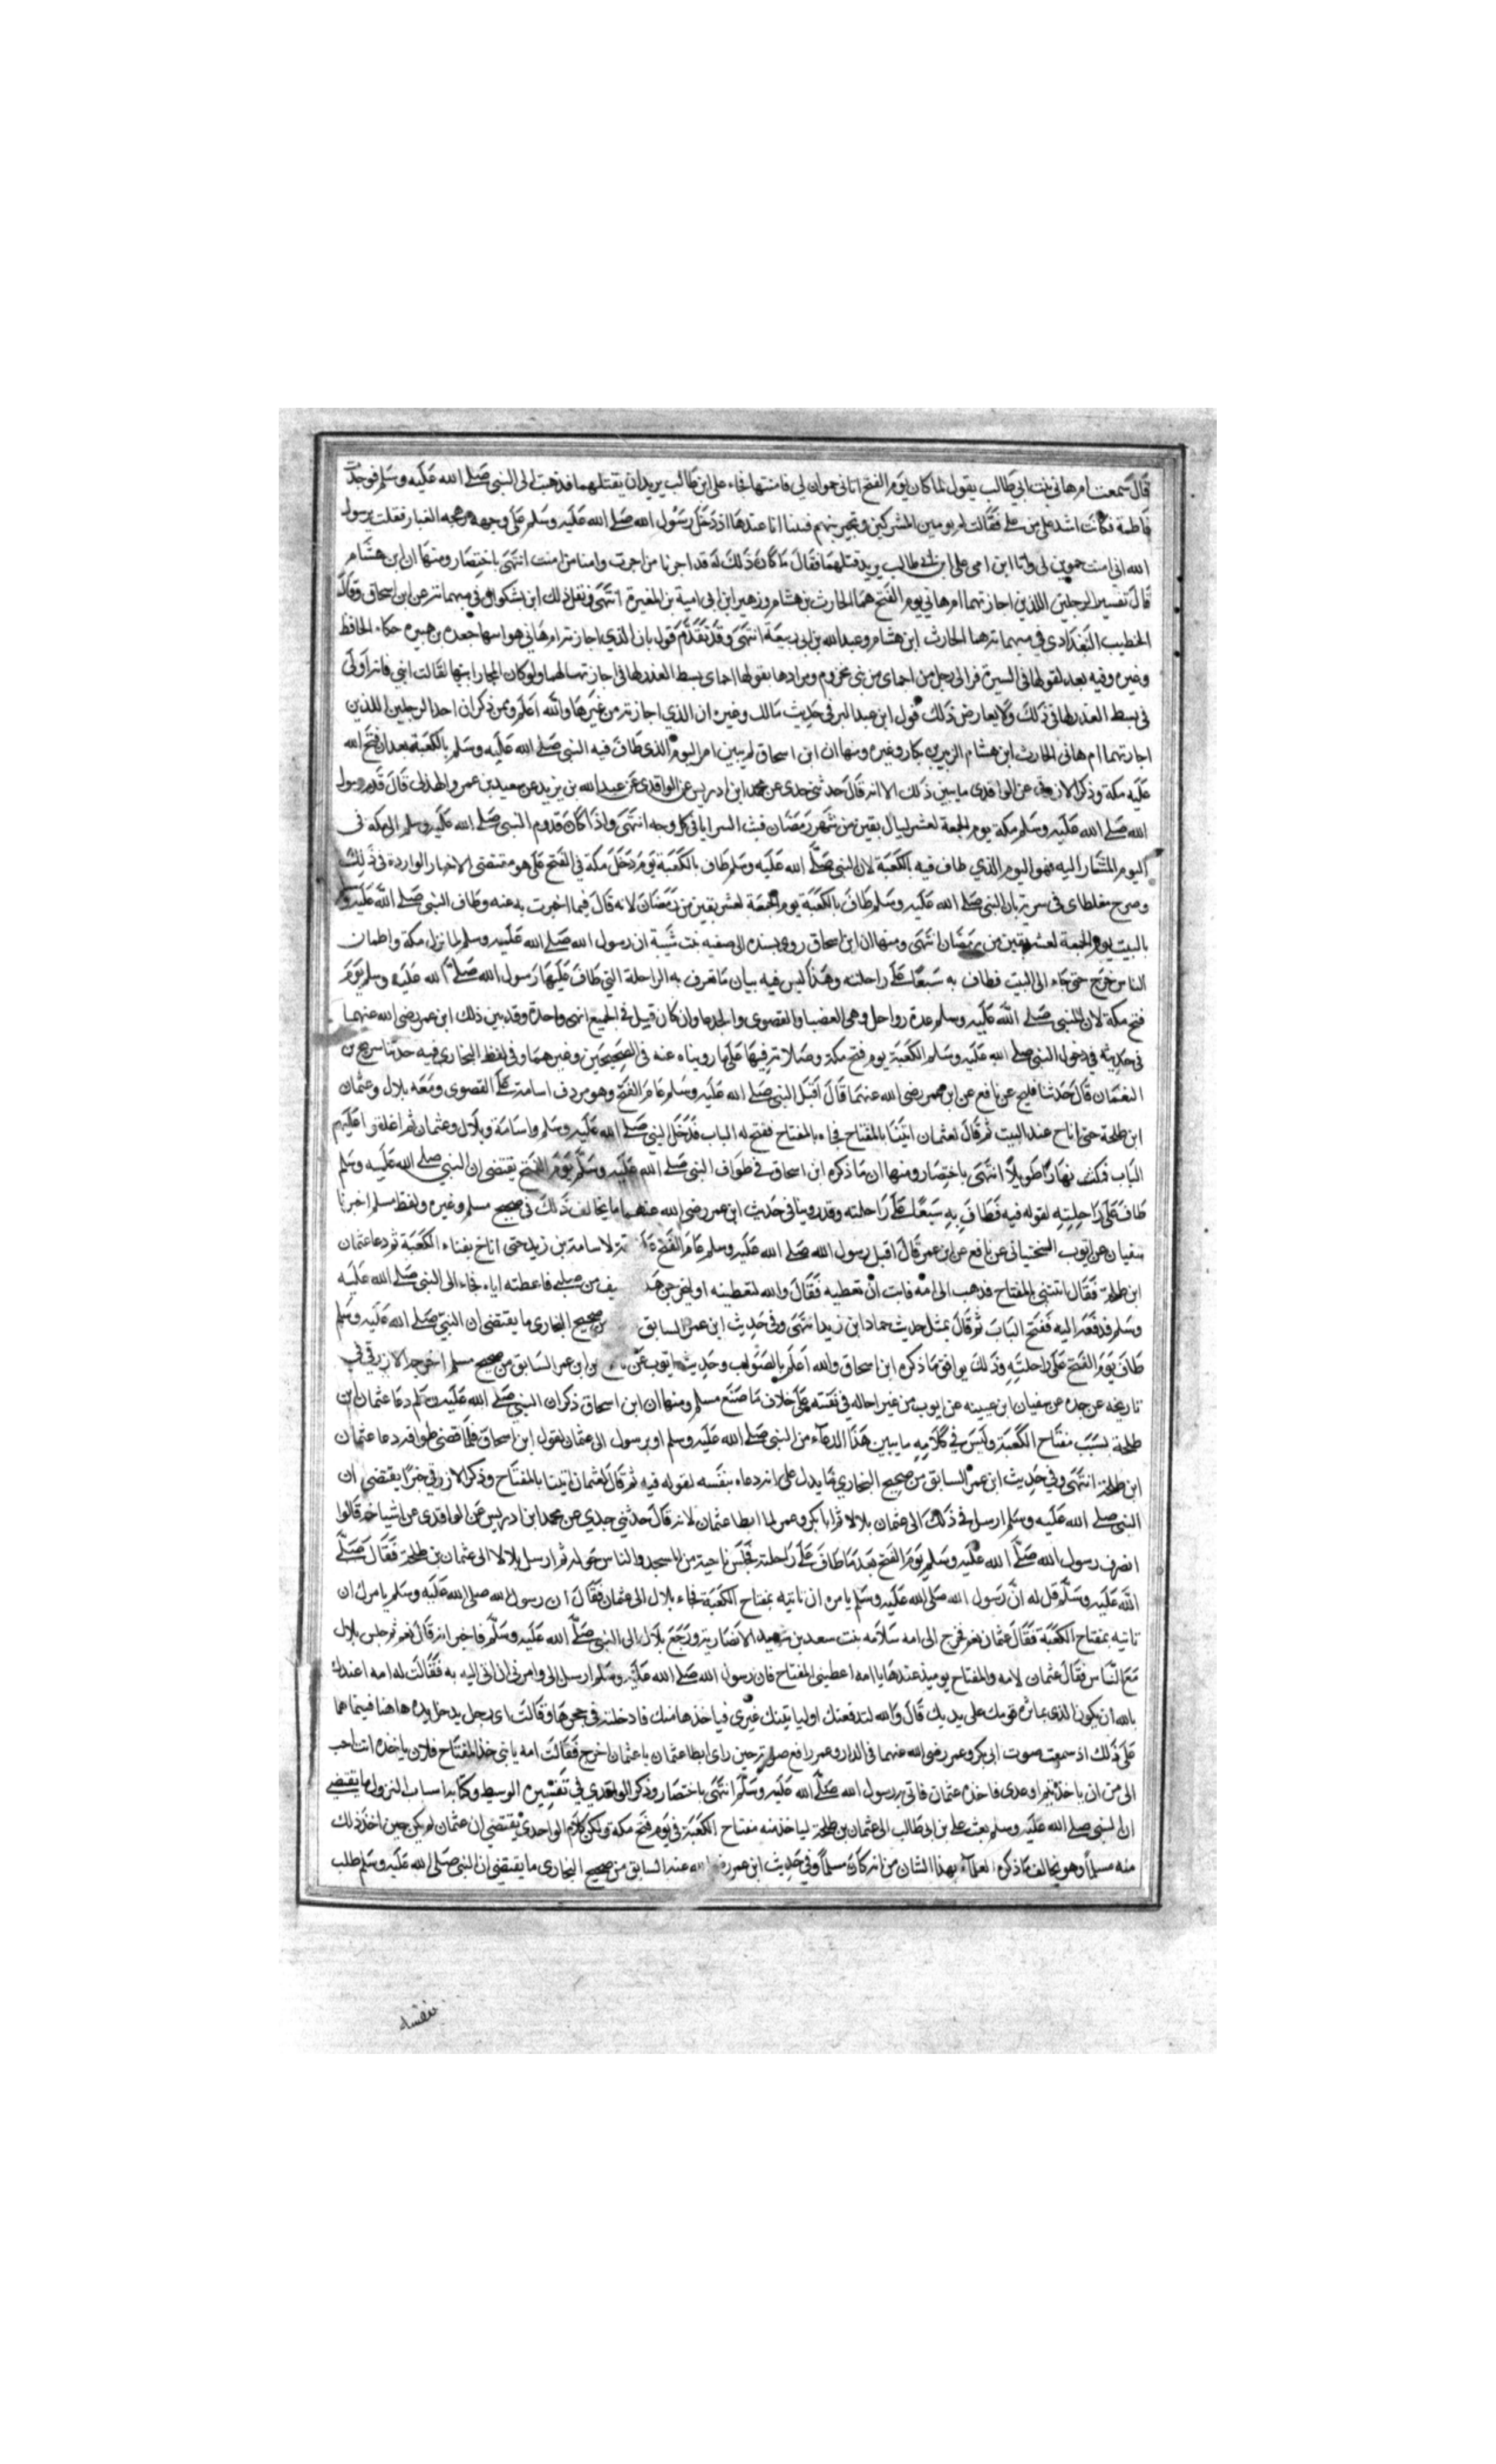 قال سمعت ام هاني بنت ابي طالب يقول لما كان يوم الفتح اتاني حموان لي فامنتهما فجاء علي ابن طالب يريد ان يقتلهما فذهبت الى النبي صلى الله عليه وسلم فوجدت
فاطمة فكانت اشد علي من علي فقالت لم يومين المشركين وتجيرينهم فبينا انا عندها اذ دخل رسول الله صلى الله عليه وسلم على وجهه رهجه الغبار فقلت يرسول
الله اني امنت حموين لي وانا ابن امي علي ابن ابي طالب يريد قتلهما فقال ما كان ذلك له قد اجرنا من اجرت وامنا من امنت انتهى باختصار ومنها ان ابن هشام
قال تفسير الرجلين اللذين اجارتهما ام هاني يوم الفتح هما الحارث بن هشام وزهير ابن ابي امية بن المغيرة انتهى ونقل ذلك ابن بشكوال في مبهماته عن ابن اسحاق وقال
الخطيب البغدادي في مبهماته هما الحارث ابن هشام وعبدالله بن ابي ربيعة انتهى وقد تقدم قول بان الذي اجارته ام هاني هو ابنها جعده بن هبيره حكاه الحافظ
وغيره وفيه بعد لقولها في السيرة فر الى رجل من احماي من بني مخزوم ومرادها بقولها احماي بسط العذر لها في اجارتها لهما ولو كان المجار ابنها لقالت ابني فانه اولى
في بسط العذر لها في ذلك ولا يعارض ذلك قول ابن عبد البر في حديث مالك وغيره ان الذي اجارته من غيرها والله اعلم وممن ذكر ان احد الرجلين اللذين
اجارتهما ام هاني الحارث ابن هشام الزبير بن بكار وغيره ومنها ان ابن اسحاق لم يبين امر اليوم الذي طاف فيه النبي صلى الله عليه وسلم بالكعبة بعد ان فتح الله
عليه مكة وذكر الازرقي عن الواقدي ما يبين ذلك لانه قال حدثني جدي عن محمد ابن ادريس عن الواقدي عن عبدالله بن يزيد عن سعيد بن عمرو الهذلي قال قدم رسول
الله صلى الله عليه وسلم مكة يوم الجمعة لعشر ليال بقين من شهر رمضان فبث السرايا في كل وجه انتهى واذا كان قدوم النبي صلى الله عليه وسلم الى مكة في
اليوم المشار اليه فهو اليوم الذي طاف فيه بالكعبة لان النبي صلى الله عليه وسلم طاف بالكعبة يوم دخل مكة في الفتح على هو مقتضى الاخبار الواردة في ذلك
وصرح مغلطاي في سيرته بان النبي صلى الله عليه وسلم طاف بالكعبة يوم الجمعة لعشر بقين من رمضان لانه قال فيما اخبرت به عنه وطاف النبي صلى الله عليه و
بالبيت يوم الجمعة لعشر بقين من رمضان انتهى ومنها ان ابن اسحاق روى بسنده الى صفيه بنت شيبة ان رسول الله صلى الله عليه وسلم لما نزل مكة واطمان
الناس خرج حتى جاء الى البيت فطاف به سبعا على راحلته وهذا ليس فيه بيان ما تعرف به الراحلة التي طاف عليها رسول الله صلى الله عليه وسلم يوم
فتح مكة لان للنبي صلى الله عليه وسلم عدة رواحل وهي العضبا والقصوى والجدعا وان كان قيل في الجميع انهن واحدة وقد بين ذلك ابن عمر رضي الله عنهما
في حديثه في دخول النبي صلى الله عليه وسلم الكعبة يوم فتح مكة وصلاته فيها على ما رويناه عنه في الصحيحين وغيرهما وفي لفظ البخاري فيه حدثنا سريج بن
النعمان قال حدثنا فليح عن نافع عن ابن عمر رضي الله عنهما قال اقبل النبي صلى الله عليه وسلم عام الفتح وهو مردف اسامة على القصوى ومعه بلال وعثمان
ابن طلحة حتى اناخ عند البيت ثم قال لعثمان ايتنا بالمفتاح فجاءه بالمفتاح ففتح له الباب فدخل النبي صلى الله عليه وسلم واسامة وبلال وعثمان ثم اغلقوا عليهم
الباب فمكث نهارا طويلا انتهى باختصار ومنها ان ما ذكره ابن اسحاق في طواف النبي صلى الله عليه وسلم يوم الفتح يقتضي ان النبي صلى الله عليه وسلم
طاف على راحلته لقوله فيه فطاف به سبعا على راحلته وقد روينا في حديث ابن عمر رضي الله عنهما ما يخالف ذلك في صحيح مسلم وغيره ولفظ مسلم اخبرنا
سفيان عن ايوب السختياني عن نافع عن ابن عمر قال اقبل رسول الله صلى الله عليه وسلم عام الفتح لاسامة بن زيد حتى اناخ بفناء الكعبة ثم دعا عثمان
ابن طلحة فقال ائتني بالمفتاح فذهب الى امه فابت ان تعطيه فقال والله لتعطينه او ليخرجن هذ يف من صلبي فاعطته اياه فجاء الى النبي صلى الله عليه
وسلم فدفعه اليه ففتح الباب ثم قال بمثل حديث حماد ابن زيد انتهى وفي حديث ابن عمر السابق من صحيح البخاري ما يقتضي ان النبي صلى الله عليه وسلم
طاف يوم الفتح على راحلته وذلك يوافق ما ذكره ابن اسحاق والله اعلم بالصواب وحديث ايوب عن نافع عن ابن عمر السابق من صحيح مسلم اخرجه الازرقي في
تاريخه عن جده عن سفيان ابن عيينه عن ايوب من غير احاله في نفسه على خلاف ما صنع مسلم ومنها ان ابن اسحاق ذكر ان النبي صلى الله عليه وسلم دعا عثمان ابن
طلحة بسبب مفتاح الكعبة وليس في كلامه ما يبين هذا الدعاء من النبي صلى الله عليه وسلم او برسول الى عثمان لقول ابن اسحاق فلما قضى طوافه دعا عثمان
ابن طلحة انتهى وفي حديث ابن عمر السابق من صحيح البخاري ما يدل على انه دعاه بنفسه لقوله فيه ثم قال لعثمان ايتنا بالمفتاح وذكر الازرقي خبرا يقتضي ان
النبي صلى الله عليه وسلم ارسل في ذلك الى عثمان بلالا ثم ابا بكر وعمر لما ابطا عثمان لانه قال حدثني جدي عن محمد ابن ادريس عن الواقدي عن اشياخه قالوا
انصرف رسول الله صلى الله عليه وسلم يوم الفتح بعد ما طاف على راحلته فجلس ناحية من المسجد والناس حوله ثم ارسل بلالا الى عثمان بن طلحة فقال صلى
الله عليه وسلم قل له ان رسول الله صلى الله عليه وسلم يامره ان تاتيه بمفتاح الكعبة فجاء بلال الى عثمان فقال ان رسول الله صلى الله عليه وسلم يامرك ان
تاتيه بمفتاح الكعبة فقال عثمان نعم فخرج الى امه سلامه بنت سعد بن شهيد الانصارية ورجع بلال الى النبي صلى الله عليه وسلم فاخبر انه قال نعم ثم جلس بلال
مع الناس فقال عثمان لامه والمفتاح يوميذ عندها يا امه اعطيني المفتاح فان رسول الله صلى الله عليه وسلم ارسل الى وامرني ان اتي اليه به فقالت له امه اعيذك
بالله ان يكون الذي ماثرة قومك على يديك قال والله لتدفعنه او لياتينك غيري فياخذها منك فادخلته في حجرها وقالت اي رجل يدخل يده هاهنا فبينما هما
على ذلك اذ سمعت صوت ابي بكر وعمر رضي الله عنهما في الدار وعمر رافع صوته حين راى ابطا عثمان يا عثمان اخرج فقالت امه يا بني خذ المفتاح فلان ياخذه انت احب
الى من ان ياخذ تيم وعدي فاخذه عثمان فاتى به رسول الله صلى الله عليه وسلم انتهى باختصار وذكر الواقدي في تفسيره الوسيط وكتابه اسباب النزول ما يقتضي
ان النبي صلى الله عليه وسلم بعث علي بن ابي طالب الى عثمان بن طلحة لياخذ منه مفتاح الكعبة في يوم فتح مكة ولكن كلام الواحدي يقتضي ان عثمان لم يكن حين اخذ ذلك
منه مسلما وهو يخالف ما ذكره العلماء بهذا الشان من انه كان مسلما وفي حديث ابن عمر رضي الله عنه السابق من صحيح البخاري ما يقتضي ان النبي صلى الله عليه وسلم طلب
بنفسه